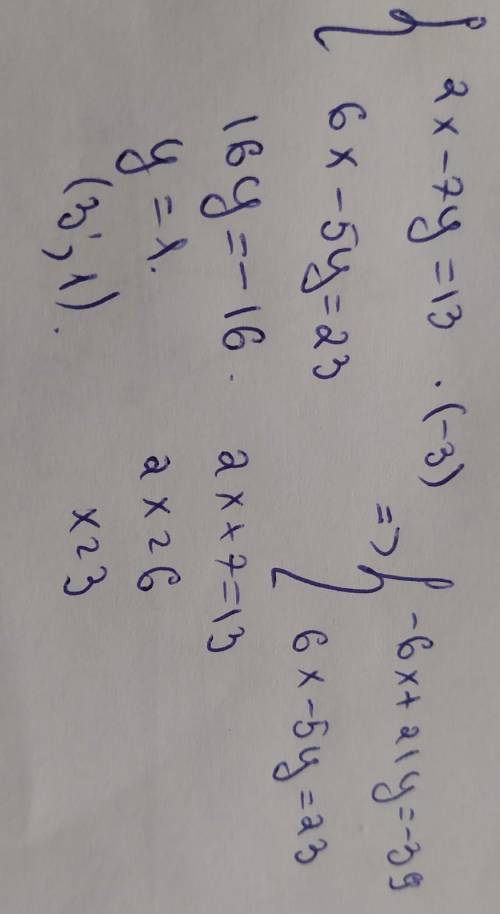 2x-7y=13 ·(-3)
6x-5y=23
=> -6x+21y=-39
6x-5y=23
16y=-16. 2x+7=13
y=1. 2x=6
(3;1). x=3